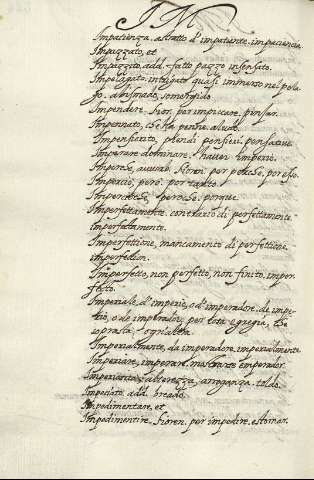 I M
Impatienza, astratto d'impatiente. impaciencia
Impazzato, et
Impazzito, add. fatto pazzo. insensato.
Impelagato. intrigato quasi immerso nel pela
go. abismado, sumergido
Impendere. fioren. per impiccare,
Impennato, che ha penne. alado.
Impensierito, pien di pensieri. pensatiue.
Imperare dominare. hauer imperio.
Imperò, auuer. fioren. per perciò, por esso.
Imperciò, però. por tanto.
Imperoche, perciòche, porque.
Imperfettamente. contrario di perfettamente.
imperfectamente.
Imperfettione, mancamento di perfettione.
imperfecion.
Imperfetto, non perfetto, non finito. imper
fecto.
Imperiale, d'imperio, o d'imperadore. de impe-
rio, o de imperador. per erba egregia, che
soprasta
Imperialmente, da imperadore. imperialmente
Imperiare, imperare. mostrarse emperador.
alterezza, arroganza. toldo.
add.
Impedimentare, et
Impedimentire, fioren. per impedire. estornar.